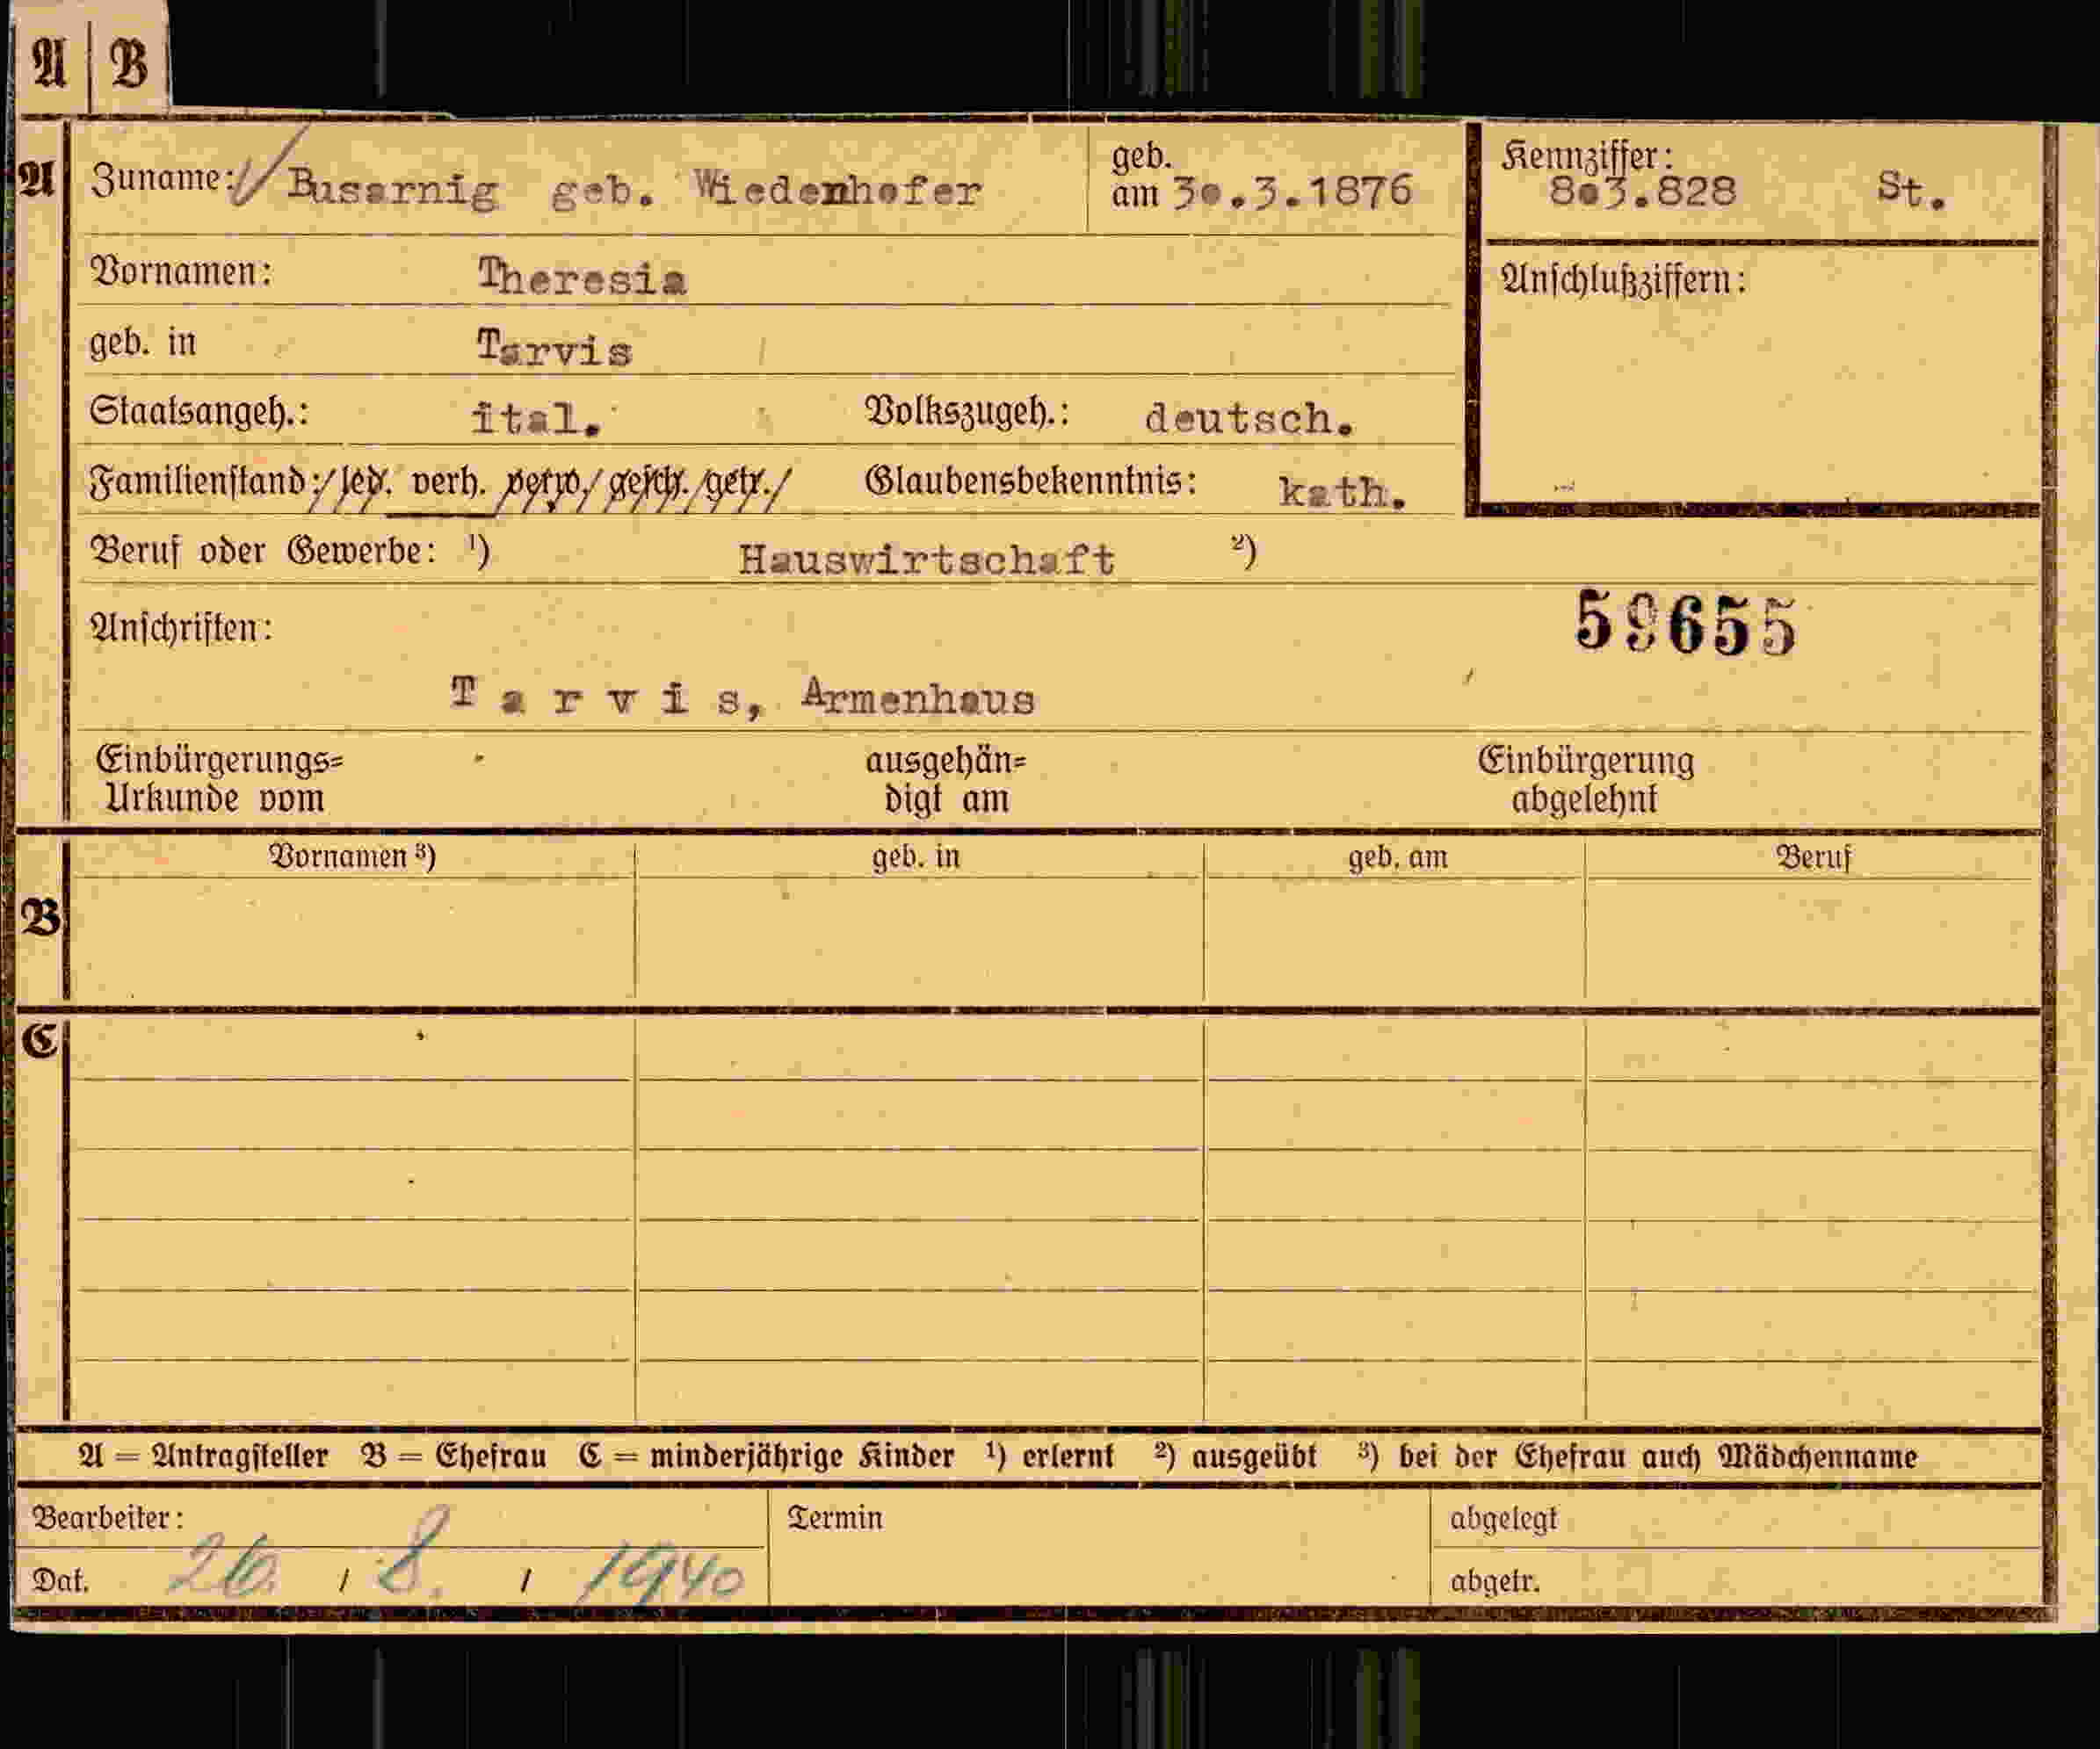 A B
A Zuname: Busarnig geb. Wiedenhofer geb. am 30.3.1876 Kennziffer: 803.828 St.
Vornamen: Theresia Anschlußziffern:
geb. in Tarvis
Staatsangeh.: ital. Volkszugeh.: deutsch.
Familienstand: led. verh. verw. gesch. getr. Glaubensbekenntnis: kath.
Beruf oder Gewerbe: ¹) Hauswirtschaft ²)
Anschriften: 59655
T a r v i s, Armenhaus
Einbürgerungs= ausgehän= Einbürgerung
Urkunde vom digt am abgelehnt
Vornamen ³) geb. in geb. am Beruf
B
C
A = Antragsteller B = Ehefrau C = minderjährige Kinder ¹) erlernt ²) ausgeübt ³) bei der Ehefrau auch Mädchenname
Bearbeiter: Termin abgelegt
Dat. 26. / 8. / 1940 abgetr.